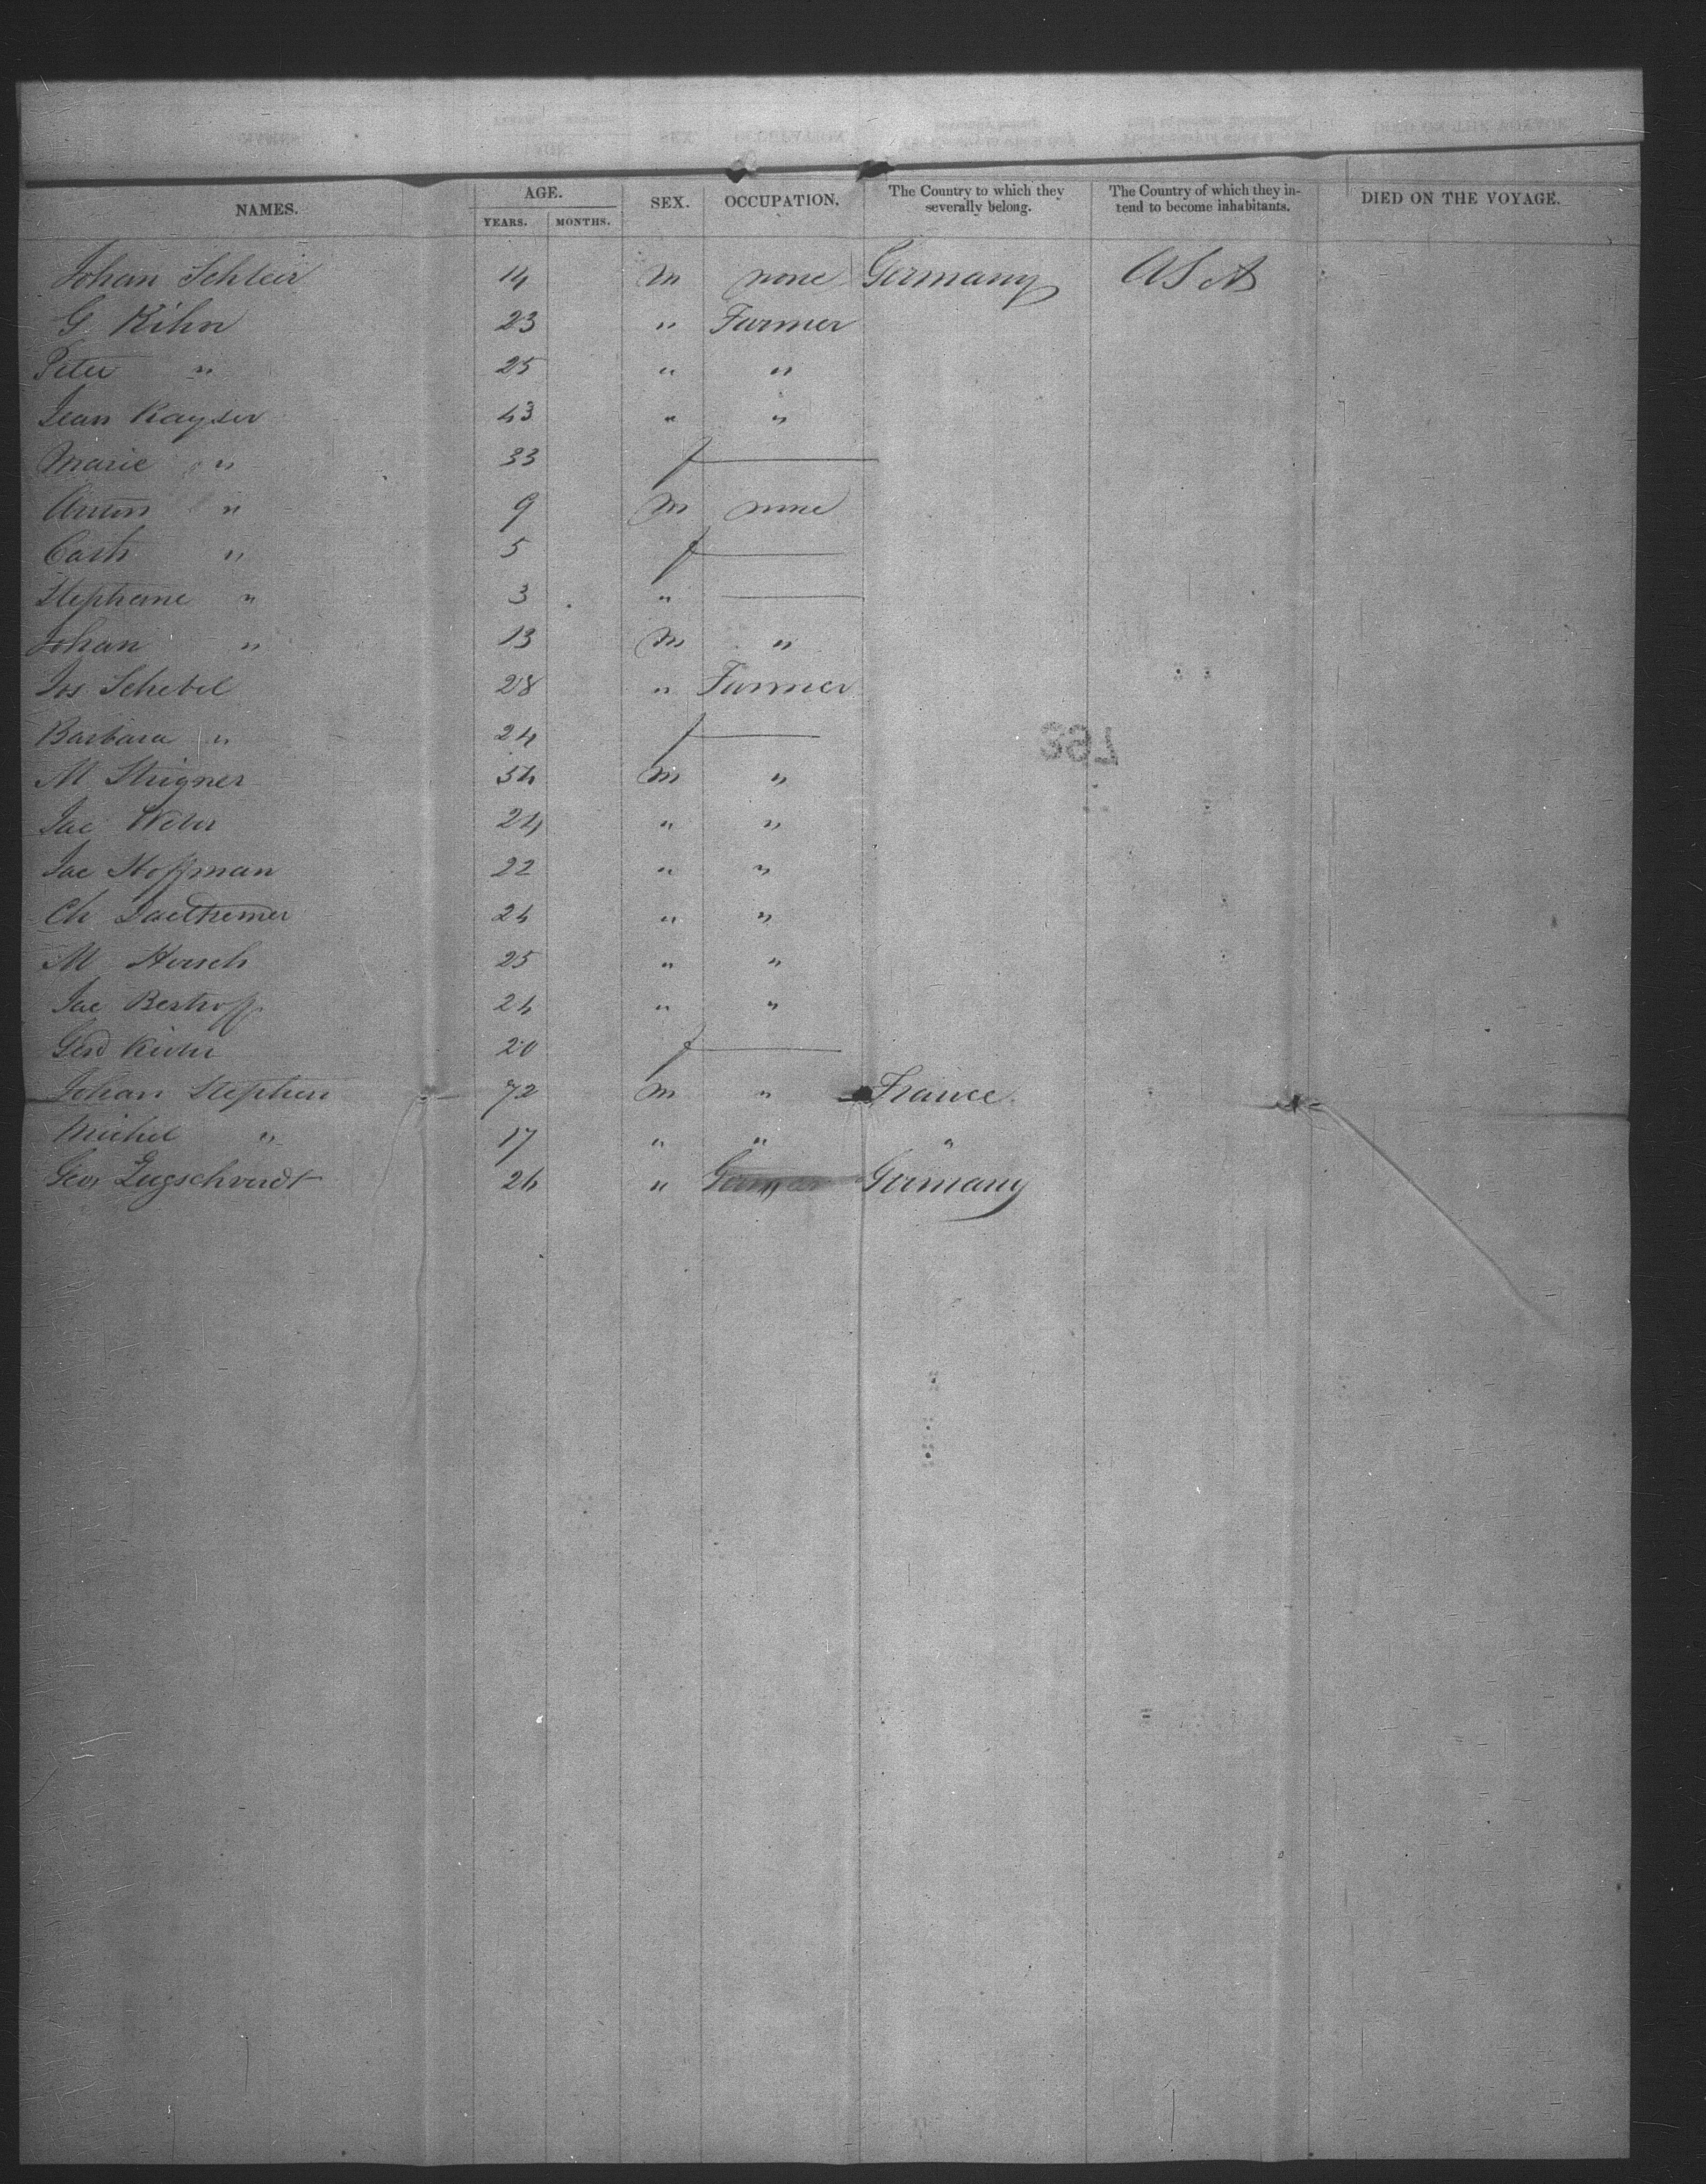 NAMES. AGE. YEARS. MONTHS. SEX. OCCUPATION. The Country to which they severally belong. The Country of which they intend to become inhabitants. DIED ON THE VOYAGE.
Johan Schleir 14 m none Germany USA
G. Kihn 23 " Farmer
Peter " 25 " "
Jean Kayser 43 " "
Marie " 33 f —
Anton " 9 m none
Cath " 5 f —
Stephanie " 3 " —
Johan " 13 m "
Jos Schebel 28 " Farmer
Barbara " 24 f —
M Steigner 34 m "
Jac Weber 24 " "
Jac Hoffman 22 " "
Ch 24 " "
M Hersch 25 " "
Jac Bestroff 24 " "
20 f —
Johan Stephen 72 m " France
Michel " 17 " " "
Geor Zugschwerdt 26 " " Germany
397